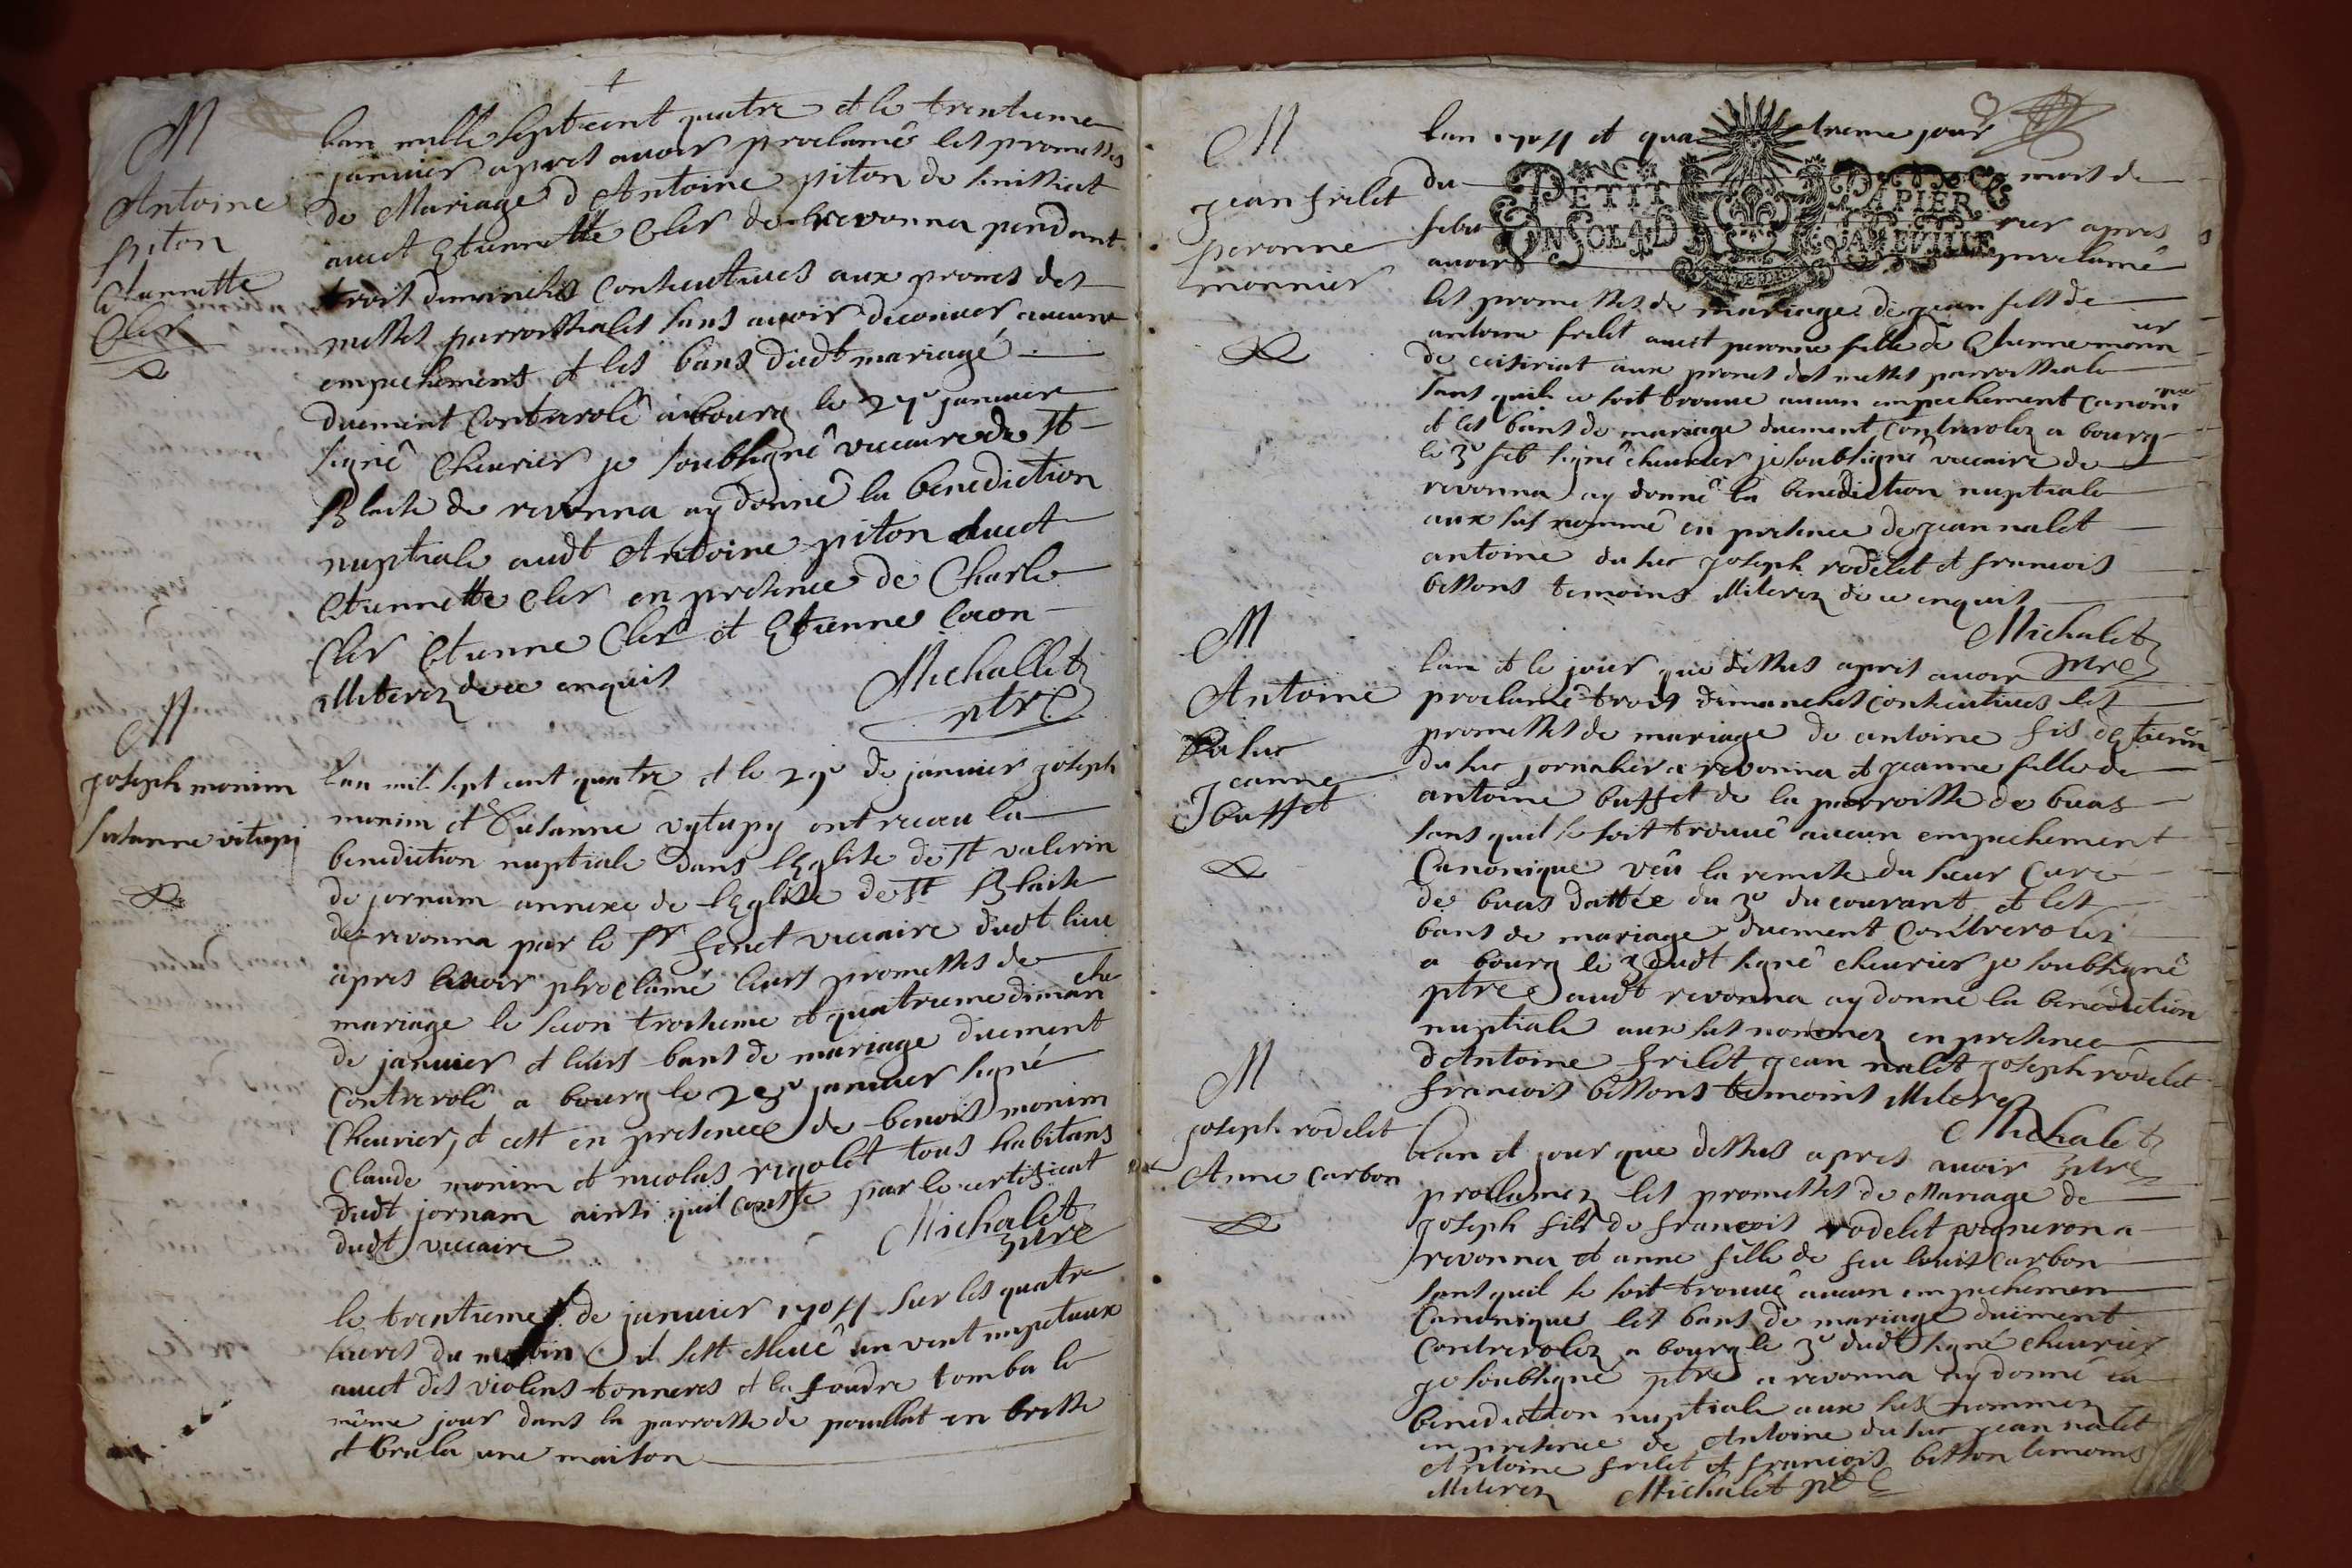 M
Antoine
piton
Etiennette
Cler
lan mille sept cent quatre et le trentieme
janvier apres avoir proclamé les promesses
de Mariage d Antoine piton de
avect Etiennette Cler de revonna pendant
trois dimanches consecutives aux prones des
messes parroissiales sans avoir decouver aucune
empechement et les bans dudt mariage
duement Contrerolé a bourg le 29e janvier
signé Cheurier je soubsigné viccaire de st
Blaise de revonna ay donné la benediction
nuptiale audt Antoine piton avect
Etiennette Cler en presence de Charle
Cler Etienne Cler et Etienne Cocon
illiterez de ce enquis
Michallet
ptre
M
joseph monim
susanne vitupi
lan mil sept cent quatre et le 29e de janvier joseph
monim et Susanne vytupy ont receu la
benediction nuptiale dans lEglise de st valerin
de jornam annexe de lEglise de st Blaise
de revonna par le sr feret viccaire dudt lieu
apres avoir proclamé leurs promesses de
mariage le secon troisieme et quatrieme dimanche
de janvier et leurs bans de mariage duement
Contrerolé a bourg le janvier signé
Cheurier, et cest en presence de benoist monim
Claude monim et nicolas rigolet tous habitans
dudt jornam ainsi quil conste par le certificat
dudt viccaire
Michalet
ptre
le trentieme de janvier 1704 sur les quatre
heures du matin il sest elleué un vent impetueux
avect des violens tonneres et la foudre tomba le
même jour dans la parroisse de pouillat en bresse
et brula une maison
M
jean frilet
peronne
monnier
lan 1704 et quatrieme jour
du mois de
PETIT PAPIER
febvrier apres
UN SOL 4 D LA FEUILLE
avoir proclamé
les promesses de mariage de jean fils de
antoine frilet avect peronne fille de Etienne monnier
de ceisiriat aux prones des messes parroissiale
sans quil ce soit trouvé aucun empechement canonique
et les bans de mariage duement Contrerolez a bourg
le 3e feb signé cheurier je soubsigné viccaire de
revonna ay donné la benediction nuptiale
aux sus nommé en presence de jean nalet
antoine du suc joseph rodelet et francois
bessons temoins illiterez de ce enquis
Michalet
ptre
M
Antoine
Du suc
jeanne
buffet
lan et le jour que dessus apres avoir
proclamé trois dimanches consecutives les
promesses de mariage de antoine fils dEtienne
du suc jornalier a revonna et jeanne fille de
antoine buffet de la parroisse de buas
sans quil se soit trouvé aucun empechement
Canonique veü la remise du sieur Curé
de buas dattée du 3e du courant et les
bans de mariage duement Contrerolez
a bourg le 3 dudt signé cheurier je soubsigné
ptre audt revonna ay donné la benediction
nuptiale aux sus nommez en presence
dAntoine frilet jean nalet joseph rodelet
francois bessons temoins illiterez
Michalet
ptre
M
joseph rodelet
Anne carbon
lan et jour que dessus apres avoir
proclamez les promesses de Mariage de
joseph fils de francois rodelet vigneron a
revonna et anne fille de feu louis carbon
sans quil se soit trouvé aucun empechemen
Canonique les bans de mariage duement
Contrerolez a bourg le 3e dudt signé cheurier
je soubsigné ptre a revonna ay donné la
benediction nuptiale aux sus nommez
en presence de Antoine du suc jean nalet
Antoine frilet et francois besson temoins
illiterez Michalet ptre